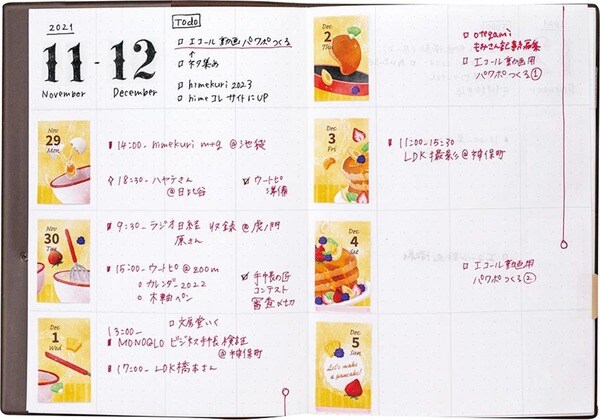 2021
11-12
November
December
Todo
□ エコール動画パワポつくる
↑
□ ネタ集め
□ himekuri 2023
□ himeコレ サイトにUP
Nov
29
Mon
14:00- himekuri mtg @池袋
18:30- ハヤテさん
@日比谷
ウートピ
準備
Nov
30
Tue
9:30- ラジオ日経 収録 @虎ノ門
原さん
15:00- ウートピ @zoom
□ カレンダー2022
□ 木軸ペン
手帳の匠
コンテスト
審査〆切
Dec
1
Wed
13:00-
□ 文房堂いく
MONOQLO ビジネス手帳検証
@神保町
17:00- LDK橋本さん
Dec
2
Thu
□ otegami
もみさん記事
□ エコール動画用
パワポつくる①
Dec
3
Fri
11:00-15:30
LDK撮影 @神保町
Dec
4
Sat
□ エコール動画用
パワポつくる②
Dec
5
Sun
Let's make
a pancake!